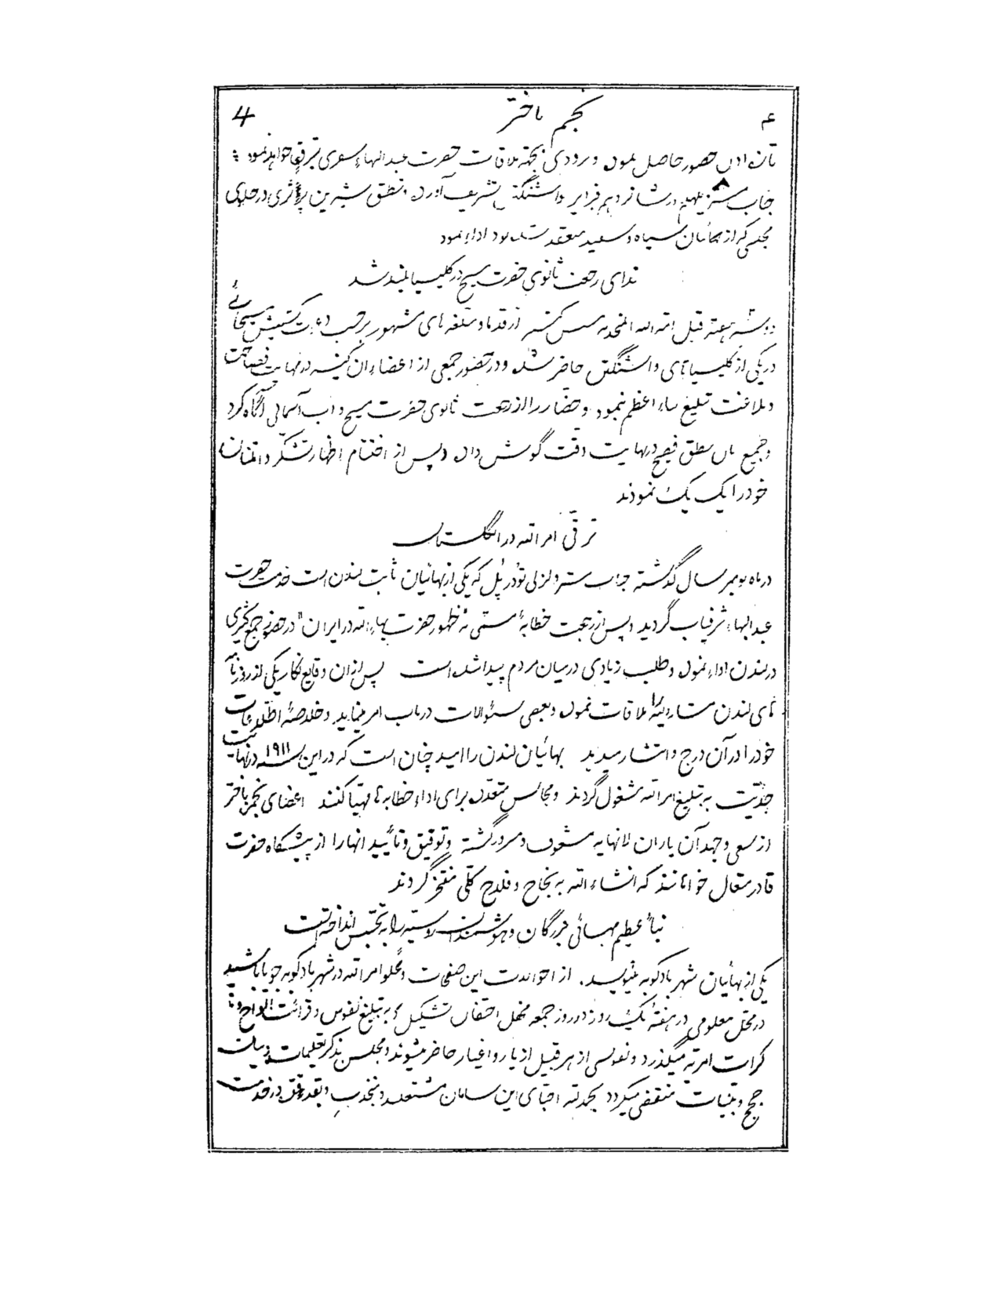 ۴ نجم باختر 4
تا اذن حضور حاصل نموده و بزودی بجهة ملاقات حضرت عبدالبهاء بسوی شرق خواهد نمود
جناب مستر در شانزدهم فبرایر واشنگتن تشریف آورده و نطق شیرین پر اثری در
مجلسی که از بهائیان سیاه و سفید منعقد شده بود اداء نمود
ندای رجعت ثانوی حضرت مسیح در کلیسیا بلند شد
دو سه هفته قبل امة الله المنجذبه مس از قدماء مبلغه های مشهور بر حسب دعوت کشیش مسیحائی
در یکی از کلیسیاهای واشنگتن حاضر شده و در حضور جمعی از اعضاء ان کنیسه در نهایت فصاحت
و بلاغت تبلیغ نباء اعظم نمود و حضار را از رجعت ثانوی حضرت مسیح و اب آسمانی آگاه کرد
و جمیع بان نطق فصیح در نهایت دقت گوش داده و پس از اختتام اظهار تشکر و امتنان
خود را یک یک نمودند
ترقی امر الله در انگلستان
در ماه نومبر سال گذشته جناب مستر که یکی از بهائیان ثابت لندن است خدمت حضرت
عبدالبهاء شرفیاب گردید و پس از رجعت خطابهٔ مسمی به ظهور حضرت بهاءالله در ایران در حضور جمع کثیری
در لندن اداء نموده و طلب زیادی در میان مردم پیدا شده است پس از ان وقایع نگار یکی از روزنامه
های لندن مشارالیه را ملاقات نموده و بعضی سئوالات در باب امر مینماید و خلاصهٔ اطلاعات
خود را در آن درج و انتشار میدهد بهائیان لندن را امید چنان است که در این سنه ۱۹۱۱ در نهایت
جدیت به تبلیغ امر الله مشغول گردند و مجالس متعدده برای اداء خطابه ها مهیا کنند اعضای نجم باختر
از سعی و جهد آن یاران لانهایه مشعوف و مسرور گشته و توفیق و تأیید انها را از پیشگاه حضرت
قادر متعال خواهانند که انشاءالله به نجاح و فلاح کلی مفتخر گردند
نباء عظیم بهائی بزرگان و هوشمندان روسیه را به تجسس انداخته است
یکی از بهائیان شهر بادکوبه مینویسد. از احوالات این صفحات و علو امر الله در شهر بادکوبه جویا باشید
در محل معلومی در هفته یک روز در روز جمعه محفل احتفال تشکیل و به تبلیغ نفوس و قرائت الواح و
مذاکرات امریه میگذرد و نفوسی از هر قبیل از یار و اغیار حاضر میشوند و مجلس بذکر تعلیمات و بیان
حجج و بینات منقضی میگردد بحمدلله احبای این سامان مشتعلند و منجذب و بقدر در خدمت